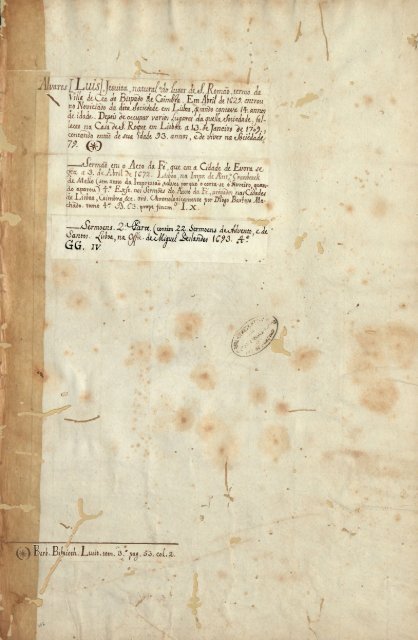 Alvares [Luis] Jesuita, natural do lugar de S. Romão, termo da
Villa de Cea do Bispado de Coimbra. Em Abril de 1629. entrou
no Noviciado da dita Sociedade em Lisboa, quando contava 14. annos
de idade. Depois de occupar varios lugares da quella Sociedade, fal-
leceo na Casa de S. Roque em Lisboa a 13. de Janeiro de 1709.,
contando mais de sua idade 93. annos, e de viver na Sociedade
79. (*)
— Sermão em o Acto da Fé, que em a Cidade de Evora se
a 3. de Abril de 1672. Lisboa na Impr. de Ant.º Craesbeeck
de Mello (sem anno da Impressão, talvez porque o corta-se o livreiro, quan-
do aparou) 4.º Existe nos Sermões do Auto da Fé, pregados nas Cidades
de Lisboa, Coimbra, &c. Chronologicamente por Diogo Barbosa Ma-
chado. tomo 4.º B. 63. I. X.
— Sermoens. 2.ª Parte. (contem 22. Sermoens de Advento, e de
Santos. Lisboa, na Offic. de Miguel Deslandes 1693. 4.º
GG. IV
(*) Barb. Biblioth. Lusit. tom. 3.º pag. 53. col. 2.